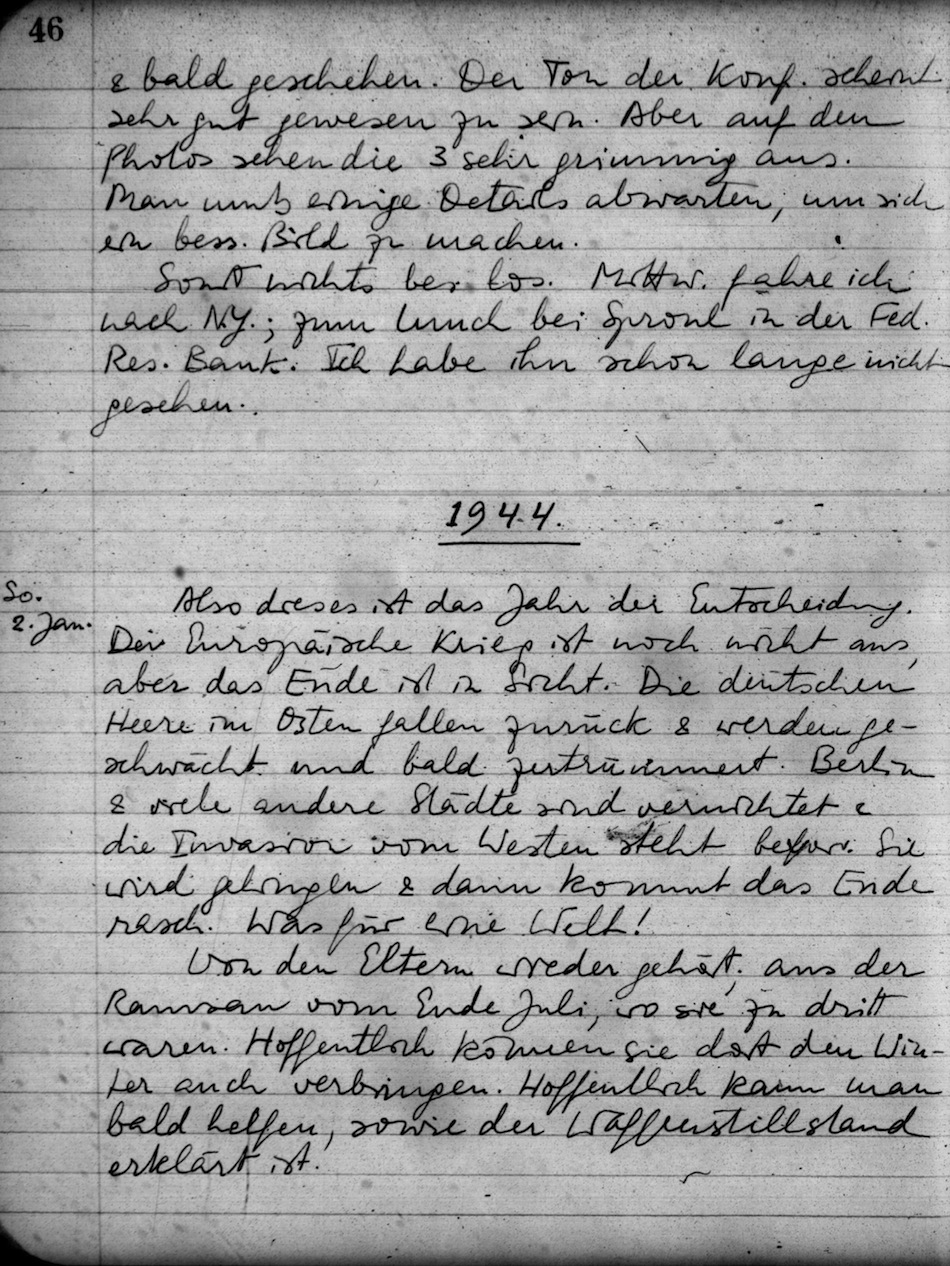 46
& bald geschehen. Der Ton der Konf. scheint
sehr gut gewesen zu sein. Aber auf den
Photos sehen die 3 sehr grimmig aus.
Man muß einige Details abwarten, um sich
ein bess. Bild zu machen.
Sonst nichts bes. los. Mittw. fahre ich
nach N.Y.; zum Lunch bei Sproul in der Fed.
Res. Bank. Ich habe ihn schon lange nicht
gesehen.
1944.
So.
2. Jan.
Also dieses ist das Jahr der Entscheidung.
Der Europäische Krieg ist noch nicht aus,
aber das Ende ist in Sicht. Die deutschen
Heere im Osten fallen zurück & werden ge-
schwächt und bald zertrümmert. Berlin
& viele andere Städte sind vernichtet &
die Invasion vom Westen steht bevor. Sie
wird gelingen & dann kommt das Ende
rasch. Was für eine Welt!
Von den Eltern wieder gehört, aus der
Ramsau vom Ende Juli, wo sie zu dritt
waren. Hoffentlich können sie dort den Win-
ter auch verbringen. Hoffentlich kann man
bald helfen, sowie der Waffenstillstand
erklärt ist.